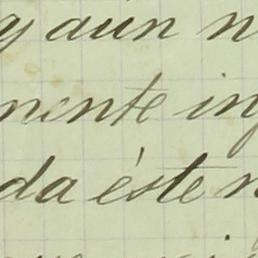 y aún n
mente in
da éste n